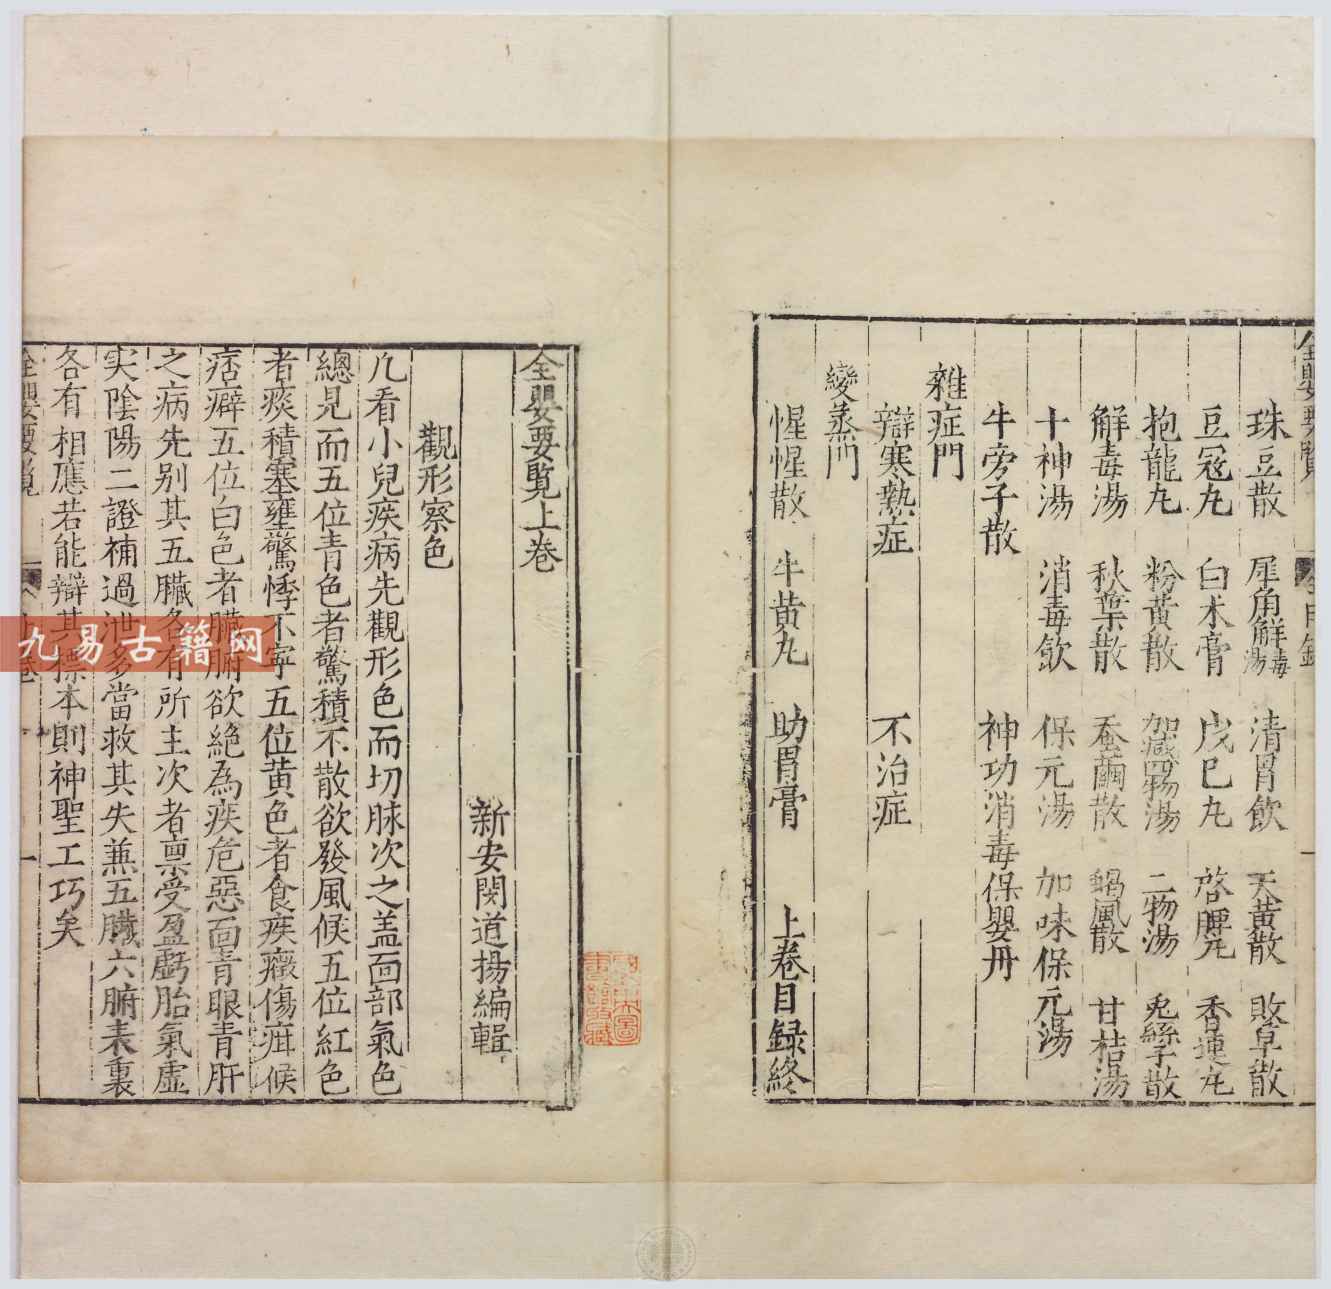 全嬰要覽
目錄
珠豆散 犀角解毒湯 清胃飲 天黃散 敗草散
豆冦丸 白术膏 戊巳丸 啓脾丸 香連丸
抱龍丸 粉黃散 加減四物湯 二物湯 兎絲子散
解毒湯 秋葉散 蚕繭散 蝎風散 甘桔湯
十神湯 消毒飲 保元湯 加味保元湯
牛旁子散 神功消毒保嬰丹
雜症門
辯寒熱症 不治症
變蒸門
惺惺散 牛黃丸 助胃膏 上卷目録終
全嬰要覧上卷
新安閔道揚編輯
觀形察色
凢看小兒疾病先觀形色而切脉次之盖面部氣色
總見而五位青色者驚積不散欲發風候五位紅色
者痰積壅塞驚悸不寧五位黃色者食疾癥傷疳候
痞癖五位白色者臟腑欲絶為疾危惡面青眼青肝
之病先别其五臟各有所主次者禀受盈虧胎氣虚
実陰陽二證補過泄多當救其失兼五臟六腑表裏
各有相應若能辯其標本則神聖工巧矣
全嬰要覧
上卷
一
九易古籍网